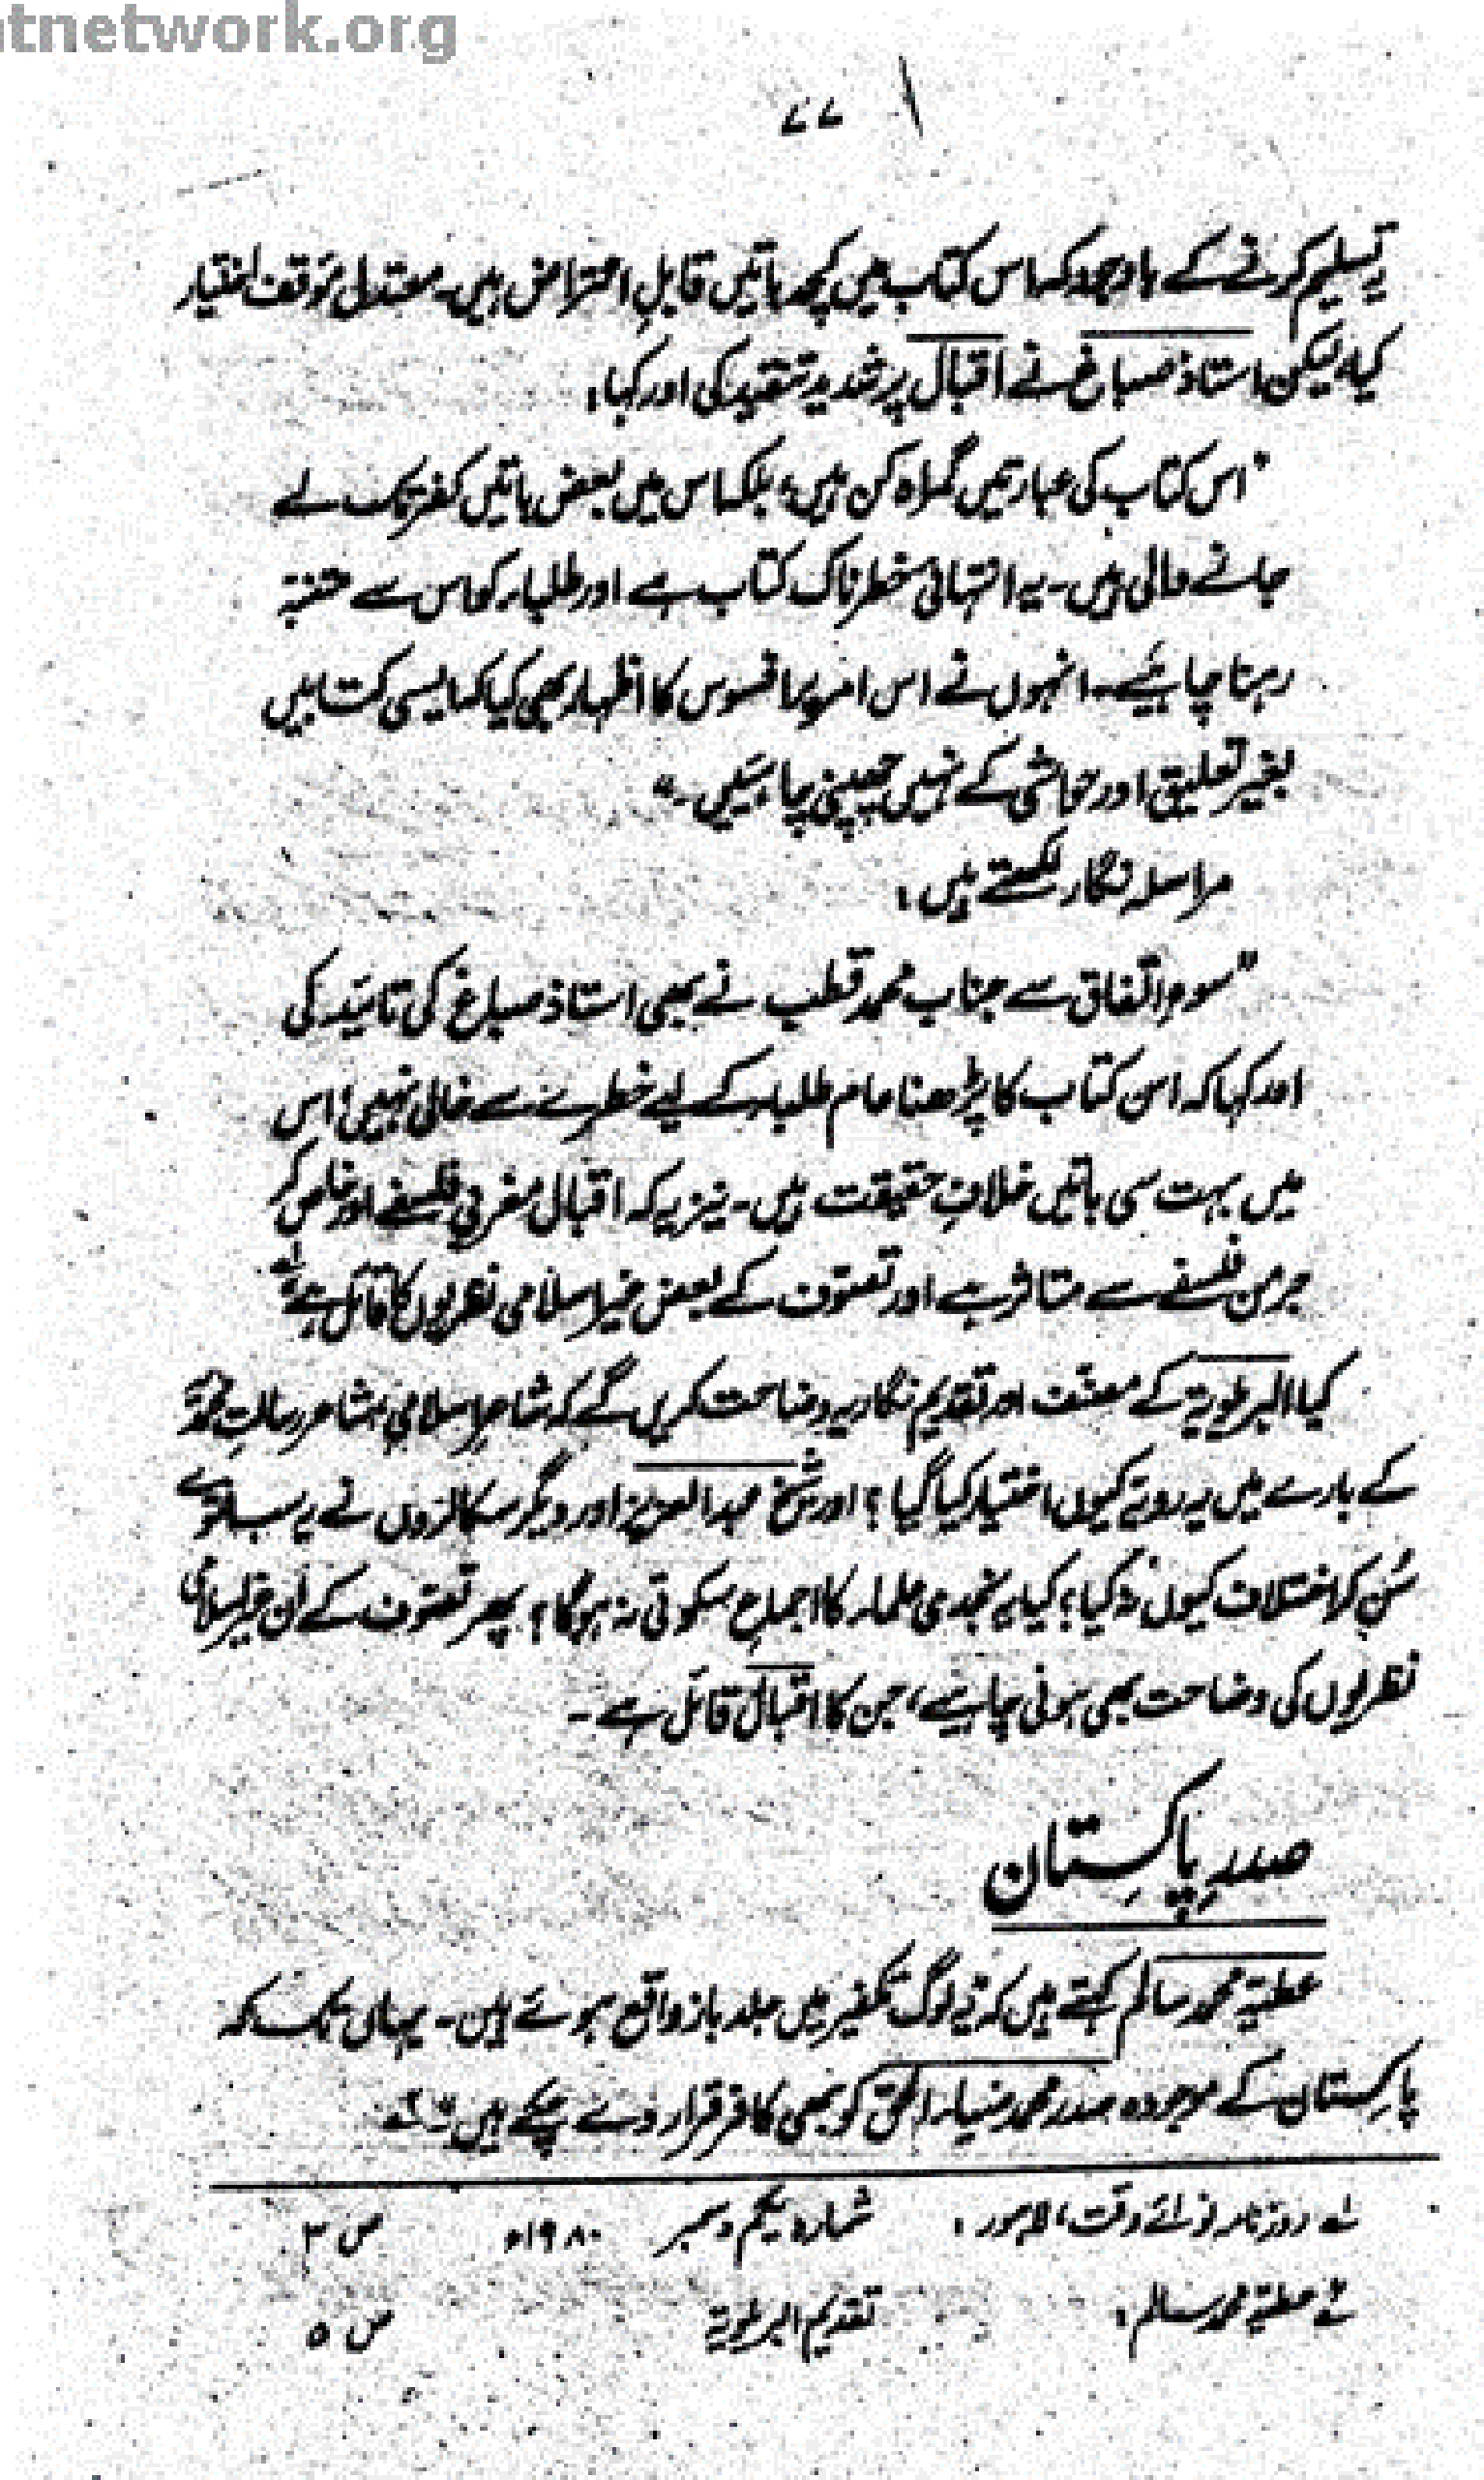 atnetwork.org
۷۷
یہ تسلیم کرنے کے باوجود کہ اس کتاب میں کچھ باتیں قابلِ اعتراض ہیں۔ معتدل مؤقف اختیار
کیا، لیکن استاذ صباغ نے اقبال پر شدید تنقید کی اور کہا:
"اس کتاب کی عبارتیں گمراہ کن ہیں، بلکہ اس میں بعض باتیں کفر تک لے
جانے والی ہیں۔ یہ انتہائی خطرناک کتاب ہے اور طلباء کو اس سے متنبہ
رہنا چاہیئے۔ انہوں نے اس امر پر افسوس کا اظہار بھی کیا کہ ایسی کتابیں
بغیر تعلیق اور حواشی کے نہیں چھپنی چاہئیں۔"
مراسلہ نگار لکھتے ہیں:
"سوءِ اتفاق سے جناب محمد قطب نے بھی استاذ صباغ کی تائید کی
اور کہا کہ اس کتاب کا پڑھنا عام طلباء کے لیے خطرے سے خالی نہیں؛ اس
میں بہت سی باتیں خلافِ حقیقت ہیں۔ نیز یہ کہ اقبال مغربی فلسفے اور خاص کر
جرمن فلسفے سے متاثر ہے اور تصوّف کے بعض غیر اسلامی نظریوں کا قائل ہے۔" ۱ے
کیا البریلویۃ کے مصنّف اور تقدیم نگار یہ وضاحت کریں گے کہ شاعرِ اسلامی، شاعر رسالتِ محمدیہ
کے بارے میں یہ رویّہ کیوں اختیار کیا گیا؟ اور شیخ عبد العزیز اور دیگر سکالروں نے یہ سب فتوے
سُن کر اختلاف کیوں نہ کیا؟ کیا یہ نجدی علماء کا اجماعِ سکوتی نہ ہوگا؟ پھر تصوّف کے اُن غیر اسلامی
نظریوں کی وضاحت بھی ہونی چاہیئے، جن کا اقبال قائل ہے۔
صدرِ پاکِستان
عطیۃ محمد سالم کہتے ہیں کہ یہ لوگ تکفیر میں جلد باز واقع ہوئے ہیں۔ یہاں تک کہ
پاکِستان کے موجودہ صدر محمد ضیاء الحق کو بھی کافر قرار دے چکے ہیں۔ ۲ے
۱ے روزنامہ نوائے وقت، لاہور: شمارہ یکم دسمبر ۱۹۸۰ء ص ۳
۲ے عطیۃ محمد سالم: تقدیم البریلویۃ ص ۵